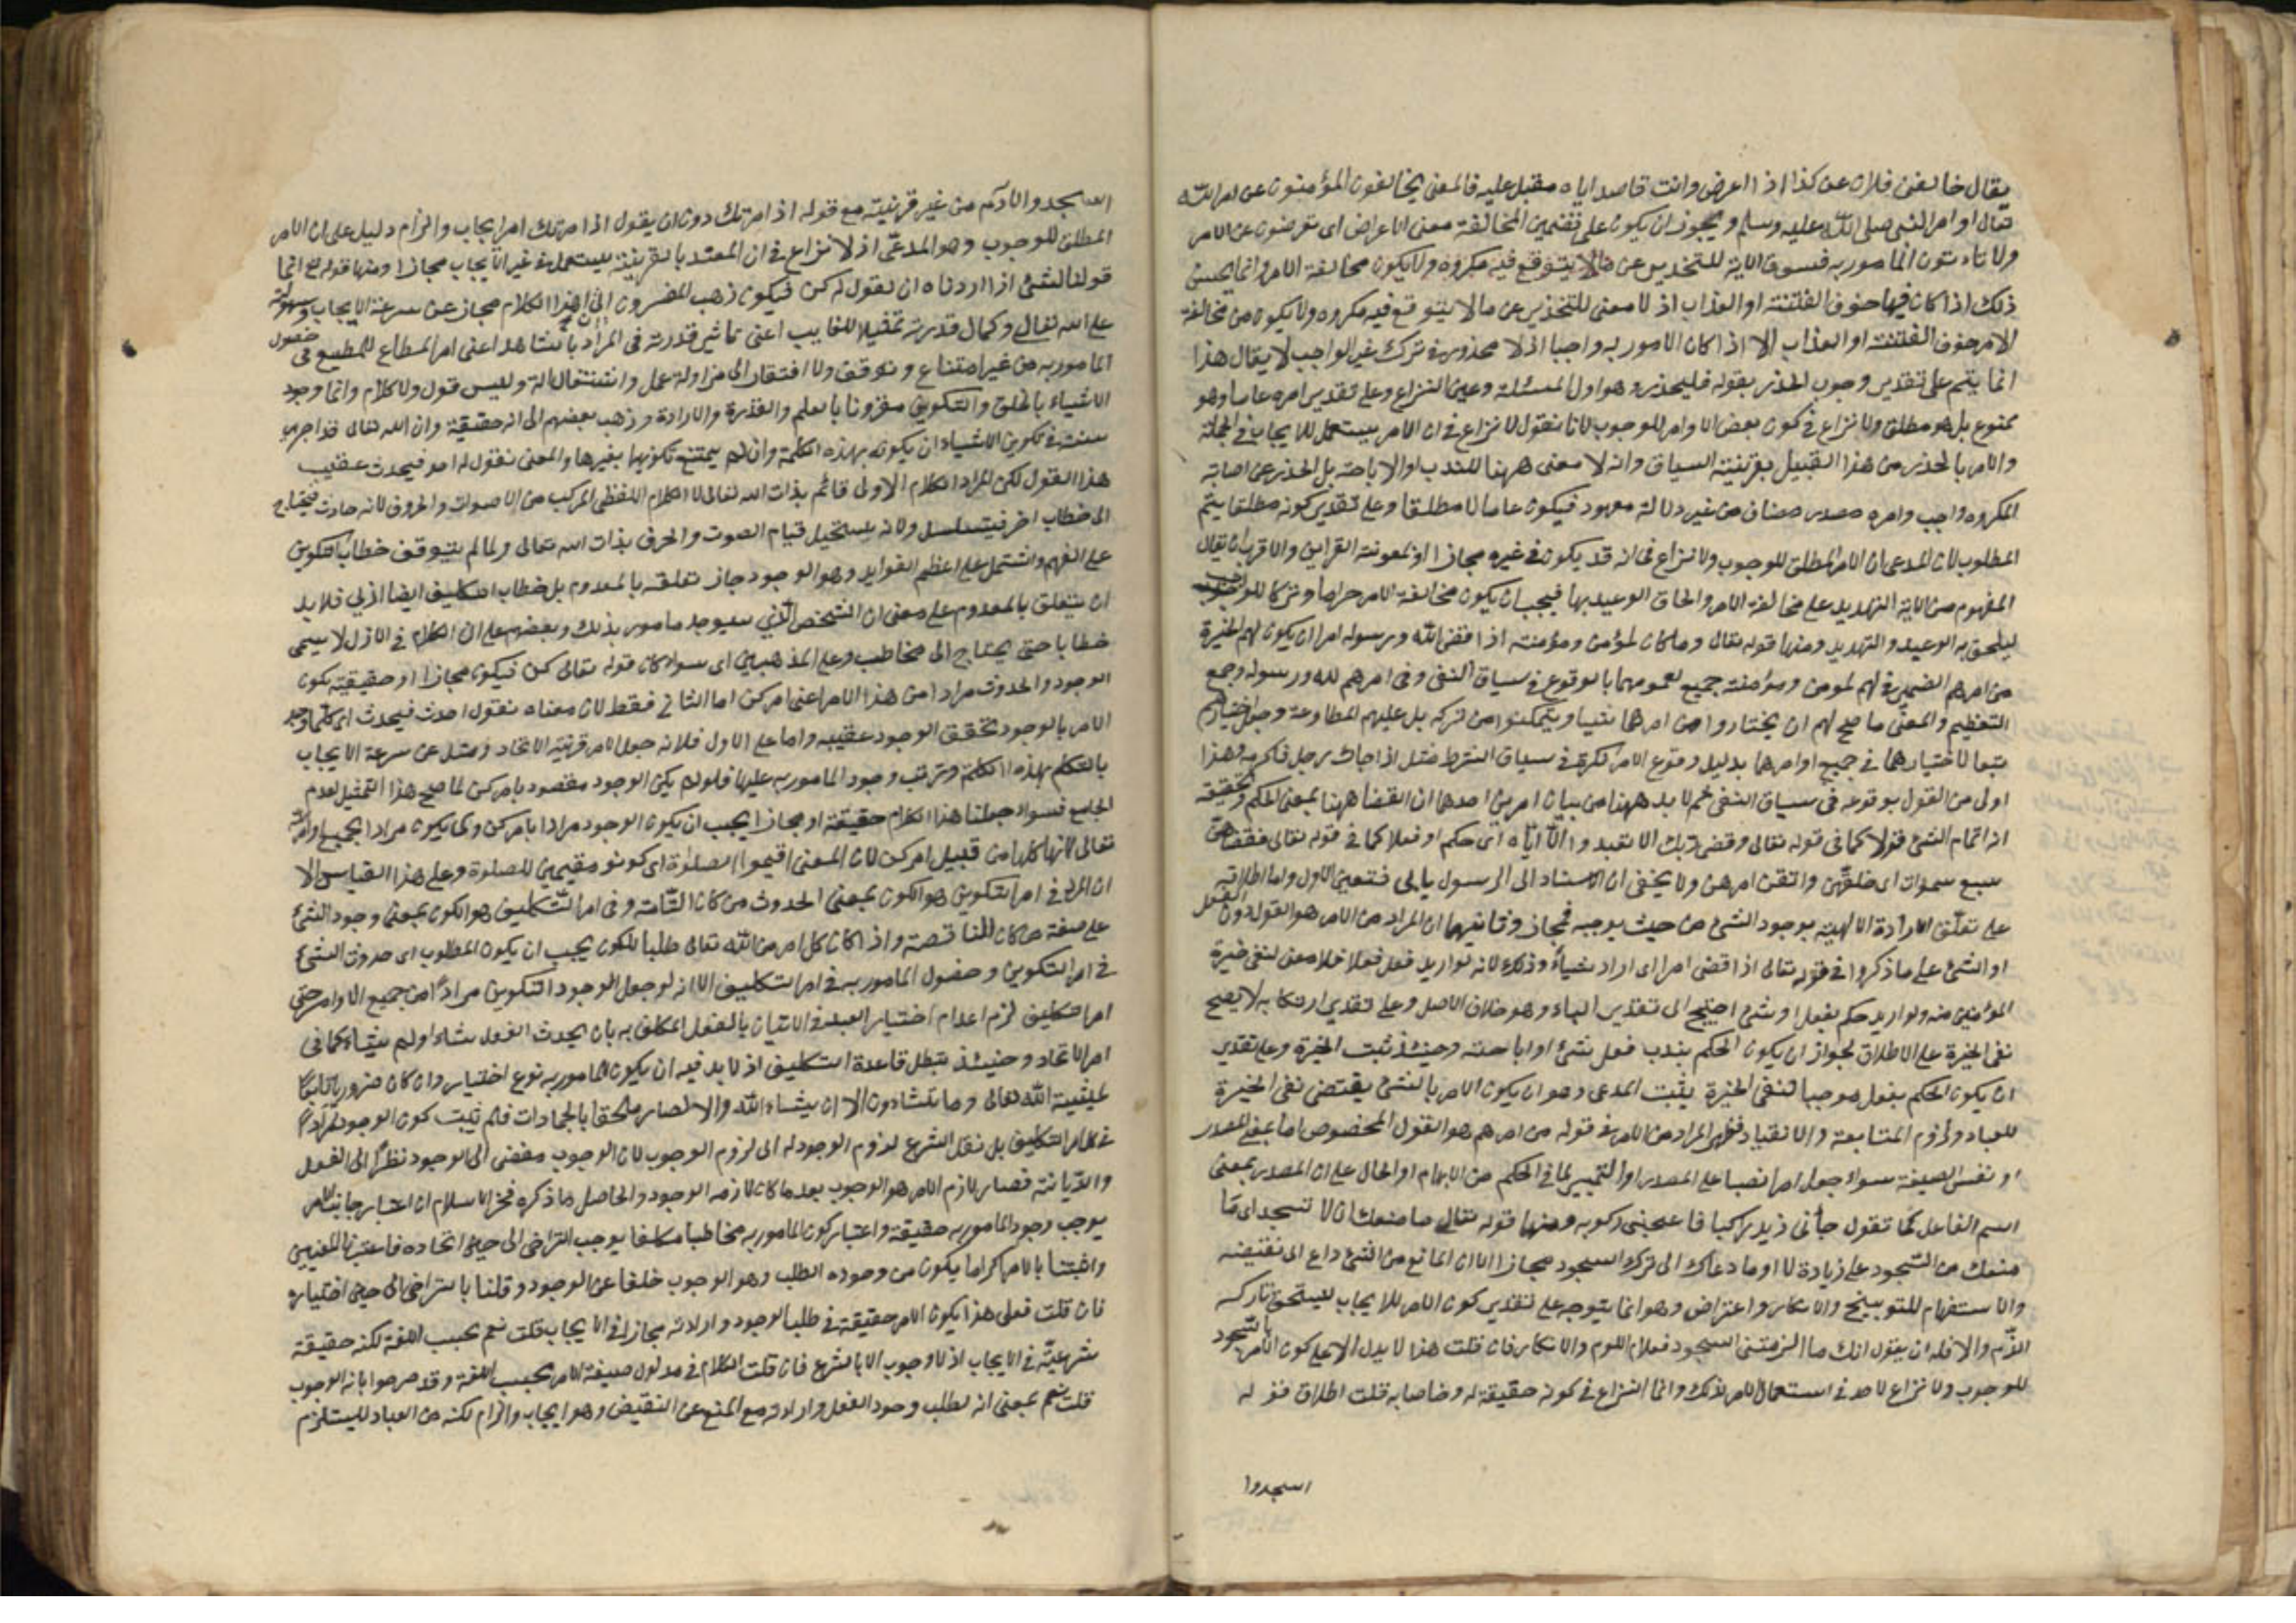 يقال خالفنى فلان عن كذا اذا اعرض وانت قاصد اياه مقبل عليه فالمعنى يخالفون المؤمنون عن امر الله
تعالى او امر النبى صلى الله عليه وسلم ويجوز ان يكون على تضمين المخالفة معنى الاعراض اى تعرضون عن الامر
ولا تأتون المأمور به فسوق الاية للتحذير عن مالا يتوقع فيه مكروه ولا يكون مخالفة الامر وانما يحسن
ذلك اذا كان فيها خوف الفتنة او العذاب اذ لا معنى للتحذير عن مالا يتوقع فيه مكروه ولا يكون من مخالفة
الامر خوف الفتنة او العذاب الا اذا كان المامور به واجبا اذ لا محذور فى ترك غير الواجب لا يقال هذا
انما يتم على تقدير وجوب الحذر بقوله فليحذر وهو اول المسئلة وعين النزاع وعلى تقدير امره عاما وهو
ممنوع بل هو مطلق ولا نزاع فى كون بعض الاوامر للوجوب لانا نقول لا نزاع فى ان الامر يستعمل للايجاب فى الجملة
والامر بالحذر من هذا القبيل بقرينة السياق وانه لا معنى ههنا للندب او الاباحة بل الحذر عن اصابة
المكروه واجب وامره مصدر مضاف من غير دلالة معهود فيكون عاما لا مطلقا وعلى تقدير كونه مطلقا يتم
المطلوب لان المدعى ان الامر المطلق للوجوب ولا نزاع فى انه قد يكون فى غيره مجازا او لمعونة القراين والاقرب ان يقال
المفهوم من الاية التهديد على مخالفة الامر والحاق الوعيد بها فيجب ان يكون مخالفة الامر حراما وتركا للواجب
ليلحق به الوعيد والتهديد ومنها قوله تعالى وما كان لمؤمن ومؤمنة اذا قضى الله ورسوله امرا ان يكون لهم الخيرة
من امرهم الضمير فى لهم لمومن ومؤمنة جميع لعمومهما بالوقوع فى سياق النفى وفى امرهم لله ورسوله وجمع
التعظيم والمعنى ما صح لهم ان يختاروا من امرهما شيئا ويتمكنوا من تركه بل عليهم المطاوعة وجعل اختيارهم
تبعا لاختيارهما فى جميع اوامرهما بدليل وقوع الامر نكرة فى سياق الشرط مثل اذا جاءك رجل فاكرمه وهذا
اولى من القول بوقوعه فى سياق النفى ثم لا بد ههنا من بيان امرين احدهما ان القضا ههنا بمعنى الحكم وتحقيقه
انه اتمام الشئ قولا كما فى قوله تعالى وقضى ربك الا تعبدوا الا اياه اى حكم او فعلا كما فى قوله تعالى فقضاهن
سبع سموات اى خلقهن واتقن امرهن ولا يخفى ان الاسناد الى الرسول يابى فتعين الاول واما اطلاقه
على تعلق الارادة الالهية بوجود الشئ من حيث يوجبه فمجاز وثانيهما ان المراد من الامر هو القول دون الفعل
او الشئ على ما ذكروا فى قوله تعالى اذا قضى امرا اى اراد شيأ وذلك لانه لو اريد فعل فعلا فلا معنى لنفى خيرة
المؤمنين منه ولو اريد حكم بفعل او شئ احتيج الى تقدير الباء وهو خلاف الاصل وعلى تقدير ارتكابه لا يصح
نفى الخيرة على الاطلاق لجواز ان يكون الحكم بندب فعل شئ او اباحته وحينئذ ثبت الخيرة وعلى تقدير
ان يكون الحكم بفعل موجبا لنفى الخيرة يثبت المدعى وهو ان يكون الامر بالشئ يقتضى نفى الخيرة
للعباد ولزوم المتابعة والانقياد فظهر المراد من الامر فى قوله من امرهم هو القول المخصوص اما بمعنى المصدر
او نفس الصيغة سواء جعل امرا نصبا على المصدر او التمييز لما فى الحكم من الابهام او الحال على ان المصدر بمعنى
اسم الفاعل كما تقول جأنى زيد راكبا فاعجبنى ركوبه ومنها قوله تعالى ما منعك ان لا تسجد اى ما
منعك من السجود على زيادة لا او ما دعاك الى ترك السجود مجازا الا ان المانع من الشئ داع الى نقيضه
والاستفهام للتوبيخ والانكار واعتراض وهو انما يتوجه على تقدير كون الامر للايجاب ليستحق تاركه
الذم والا فله ان يقول انك ما الزمتنى السجود فعلام اللوم والانكار فان قلت هذا لا يدل الا على كون الامر بالسجود
للوجوب ولا نزاع لاحد فى استعمال الامر لذلك وانما النزاع فى كونه حقيقة له وخاصا به قلت اطلاق قوله
اسجدوا
اسجدوا لادم من غير قرينة مع قوله اذ امرتك دون ان يقول اذا امرتك امر ايجاب والزام دليل على ان الامر
المطلق للوجوب وهو المدعى اذ لا نزاع فى ان المقيد بالقرينة يستعمل فى غير الايجاب مجازا ومنها قوله تع انما
قولنا لشئ اذا اردناه ان نقول له كن فيكون ذهب المفسرون الى ان هذا الكلام مجاز عن سرعة الايجاب وسهولته
على الله تعالى وكمال قدرته تمثيلا للغايب اعنى تاثير قدرته فى المراد بالشاهد اعنى امر المطاع للمطيع فى حصول
المامور به من غير امتناع وتوقف ولا افتقار الى مزاولة عمل واشتغال الة وليس قول ولا كلام وانما وجود
الاشياء بالخلق والتكوين مقرونا بالعلم والقدرة والارادة وذهب بعضهم الى انه حقيقة وان الله تعالى قد اجرى
سنته فى تكوين الاشياء ان يكونه بهذه الكلمة وان لم يمتنع تكونها بغيرها والمعنى نقول له احدث فيحدث عقيب
هذا القول لكن المراد الكلام الازلى قائم بذات الله تعالى لا الكلام اللفظى المركب من الاصوات والحروف لانه حادث فيحتاج
الى خطاب اخر فيتسلسل ولانه يستحيل قيام الصوت والحرف بذات الله تعالى ولما لم يتوقف خطاب التكوين
على الفهم واشتمل على اعظم الفوايد وهو الوجود جاز تعلقه بالمعدوم بل خطاب التكليف ايضا ازلى فلا بد
ان يتعلق بالمعدوم على معنى ان الشخص الذى سيوجد مامور بذلك وبعضهم على ان الكلام فى الازل لا يسمى
خطابا حتى يحتاج الى مخاطب وعلى المذهبين اى سواء كان قوله تعالى كن فيكون مجازا او حقيقة يكون
الوجود والحدوث مرادا من هذا الامر اعنى امر كن اما الثانى فقط لان معناه نقول احدث فيحدث اى كلما وجد
الامر بالوجود تحقق الوجود عقيبه واما على الاول فلانه جعل الامر قرينة الاتحاد ومثل عن سرعة الايجاب
بالتكلم بهذه الكلمة وترتب وجود المامور به عليها فلو لم يكن الوجود مقصود بامر كن لما صح هذا التمثيل لعدم
الجامع فسواء جعلنا هذا الكلام حقيقة او مجازا يجب ان يكون الوجود مرادا بامر كن وكما يكون مرادا بجميع اوامر الله
تعالى لانها كلها من قبيل امر كن لان المعنى اقيموا الصلوة اى كونو مقيمين للصلوة وعلى هذا القياس الا
ان المراد فى امر التكوين هو الكون بمعنى الحدوث من كان التامة وفى امر التكليف هو الكون بمعنى وجود الشئ
على صفة من كان الناقصة واذا كان كل امر من الله تعالى طلبا للكون يجب ان يكون المطلوب اى حدوث الشئ
فى امر التكوين وحصول المامور به فى امر التكليف الا انه لو جعل الوجود التكوين مرادا من جميع الاوامر حتى
امر التكليف لزم اعدام اختيار العبد فى الاتيان بالفعل المكلف به بان يحدث الفعل شاء او لم يشاء كما فى
امر الاتحاد وحينئذ تبطل قاعدة التكليف اذ لا بد فيه ان يكون للمامور به نوع اختيار وان كان ضروريا تابعا
لمشيئة الله تعالى وما تشاؤون الا ان يشاء الله والا لصار ملحقا بالجمادات فلم يثبت كون الوجود مرادا
فى امر التكليف بل نقل الشرع لزوم الوجود له الى لزوم الوجوب لان الوجوب مفضى الى الوجود نظرا الى العقل
والديانة فصار لازم الامر هو الوجوب بعد ما كان لازمه الوجود والحاصل ما ذكره فخر الاسلام ان اعتبار جانب الامر
يوجب وجود المامور به حقيقة واعتبار كون المامور به مخاطبا مكلفا يوجب التراخى الى حين اتحاده فاعتبرنا المعنيين
واثبتنا بالامر اكد ما يكون من وجوده الطلب وهو الوجوب خلفا عن الوجود وقلنا بالتراخى الى حين اختياره
فان قلت فعلى هذا يكون الامر حقيقة فى طلب الوجود وارادته مجازا فى الايجاب قلت نعم بحسب اللغة لكنه حقيقة
شرعية فى الايجاب اذ لا وجوب الا بالشرع فان قلت الكلام فى مدلول صيغة الامر بحسب اللغة وقد صرحوا بانه الوجوب
قلت نعم بمعنى انه لطلب وجود الفعل وارادته مع المنع عن النقيض وهو ايجاب والزام لكنه من العباد لا يستلزم